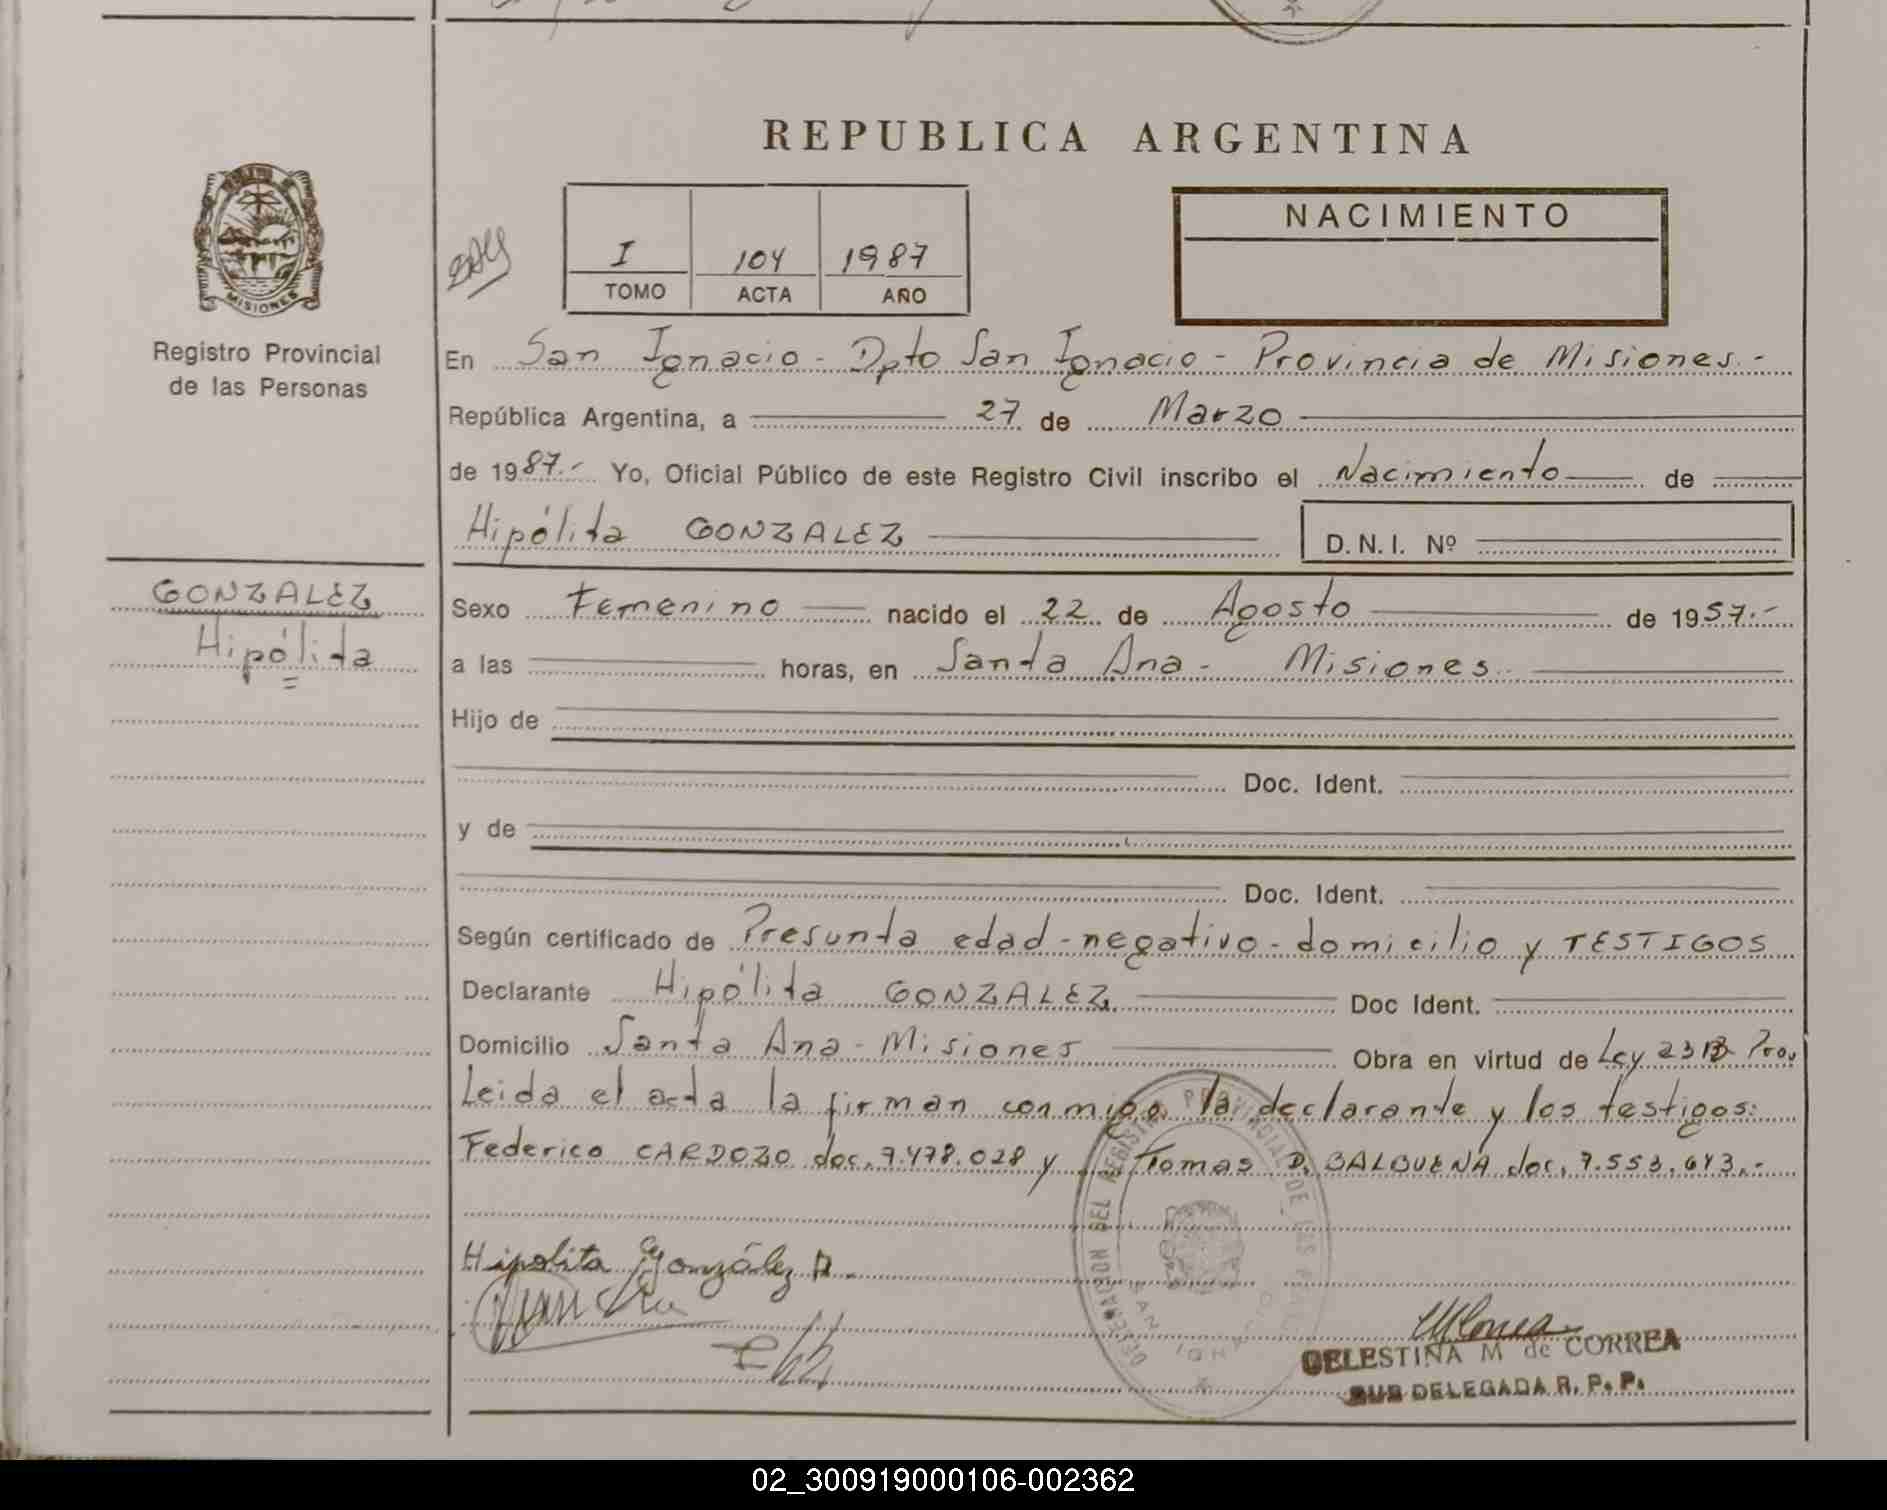 REPUBLICA ARGENTINA
NACIMIENTO
I 104 1987
TOMO ACTA AÑO
MISIONES
Registro Provincial
de las Personas
En San Ignacio - Dpto San Ignacio - Provincia de Misiones.-
República Argentina, a 27 de Marzo
de 1987.- Yo, Oficial Público de este Registro Civil inscribo el Nacimiento de
Hipólita GONZALEZ D.N.I. Nº
GONZALEZ
Hipólita
Sexo Femenino nacido el 22 de Agosto de 1957.-
a las horas, en Santa Ana - Misiones
Hijo de
Doc. Ident.
y de
Doc. Ident.
Según certificado de Presunta edad - negativo - domicilio y TESTIGOS
Declarante Hipólita GONZALEZ Doc Ident.
Domicilio Santa Ana - Misiones Obra en virtud de Ley Prov
Leida el acta la firman conmigo la declarante y los testigos:
Federico CARDOZO doc. 7.478.028 y Tomas D. BALBUENA doc. 7.553.643.-
Hipolita González
DELEGACION DEL REGISTRO PROVINCIAL DE LAS
SAN IGNACIO
CELESTINA M de CORREA
SUB DELEGADA R. P. P.
02_300919000106-002362